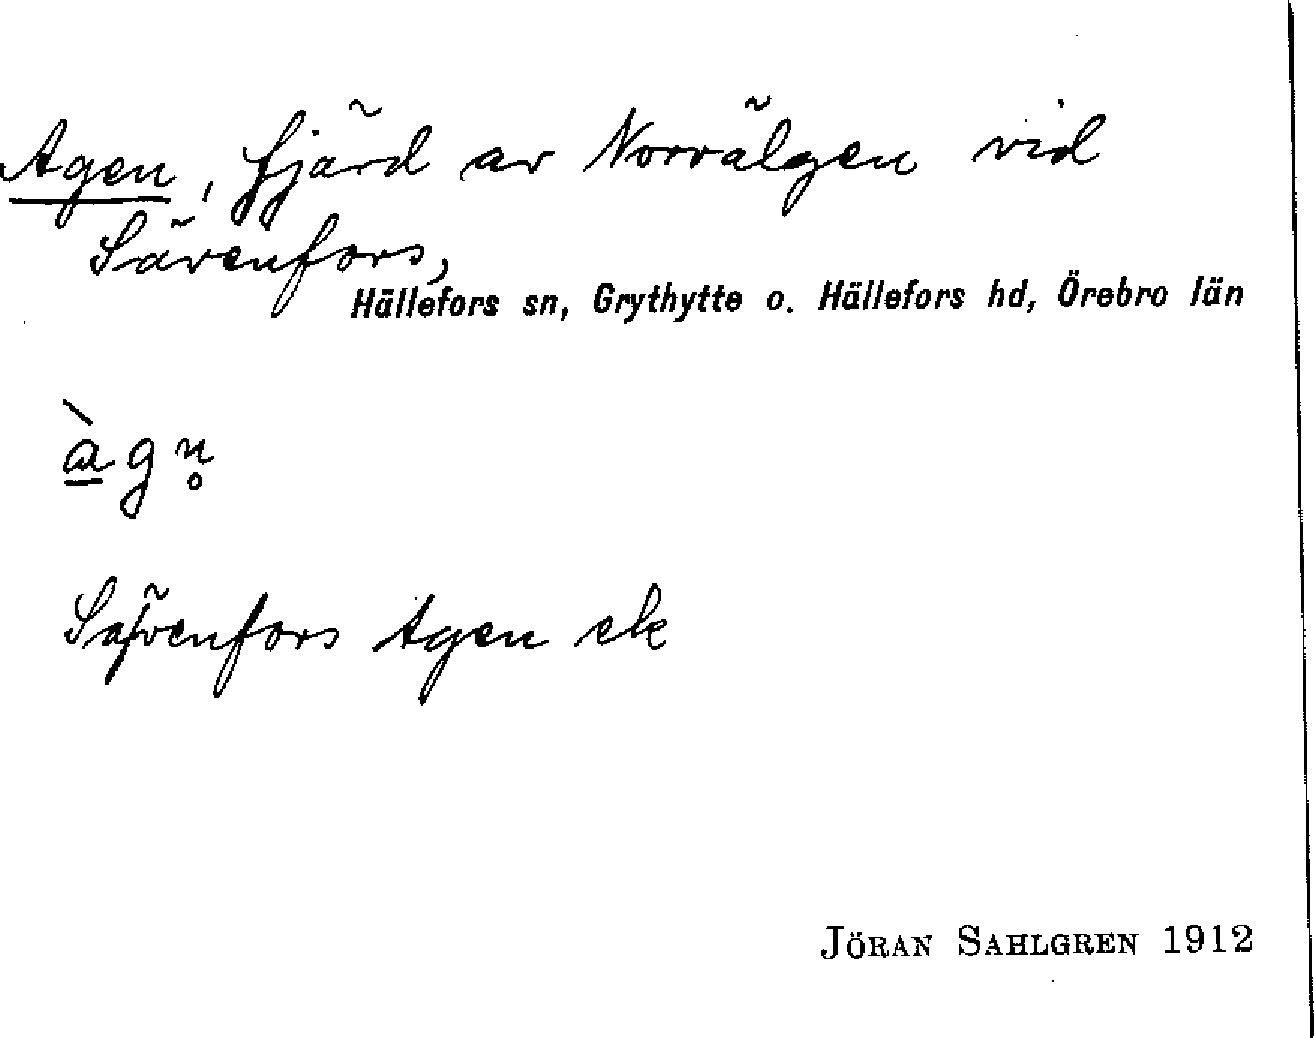 Agen, fjärd av Norrälgen vid
Sävenfors,
Hällefors sn, Grythytte o. Hällefors hd, Örebro län
àgn̥
Sävenfors Agen ek
JÖRAN SAHLGREN 1912